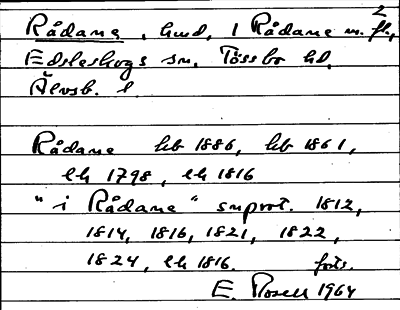 2
Rådane, hmd, 1 Rådane m. fl.,
Edsleskogs sn. Tössbo hd.
Älvsb. l.
Rådane hb 1886, hb 1861,
lh 1798, lh 1816
"i Rådane" snprot. 1812,
1814, 1816, 1821, 1822,
1824, lh 1816. forts.
E. Rosell 1964